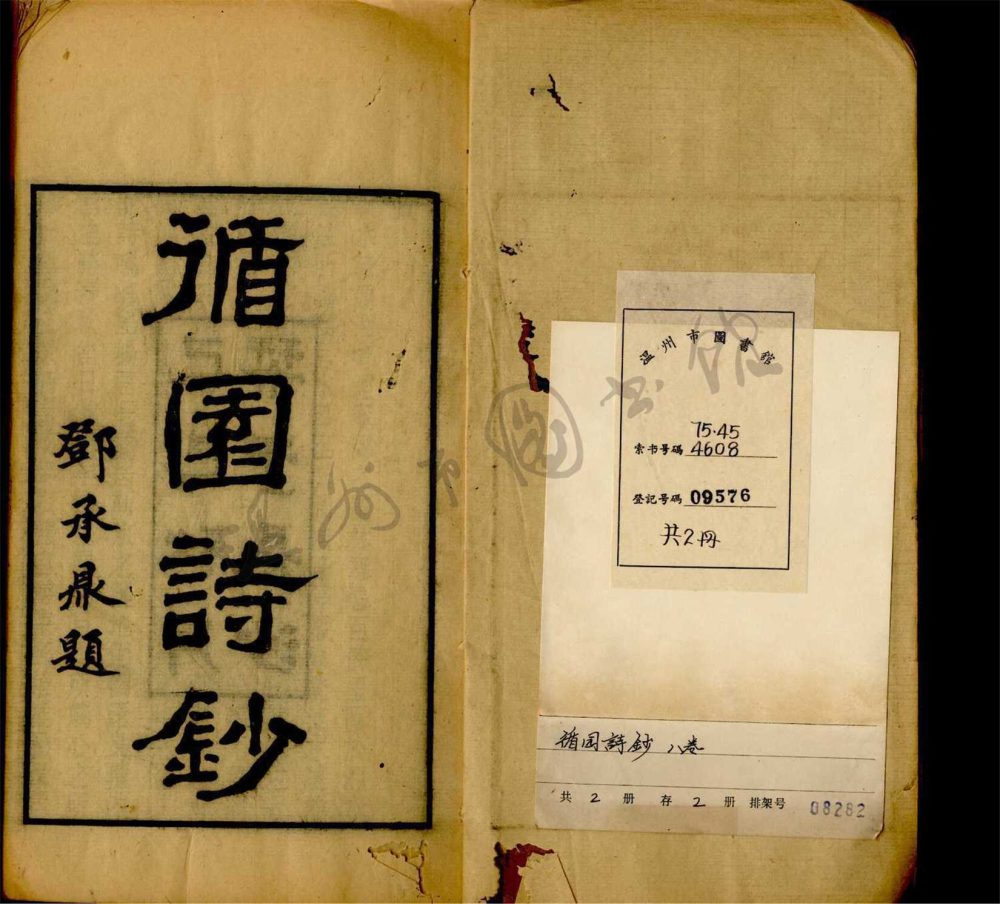 循園詩鈔
鄧承鼎題
温州市圖書館
75·45
索书号碼 4608
登記号碼 09576
共2册
循园詩鈔 八卷
共 2 册 存 2 册 排架号 08282